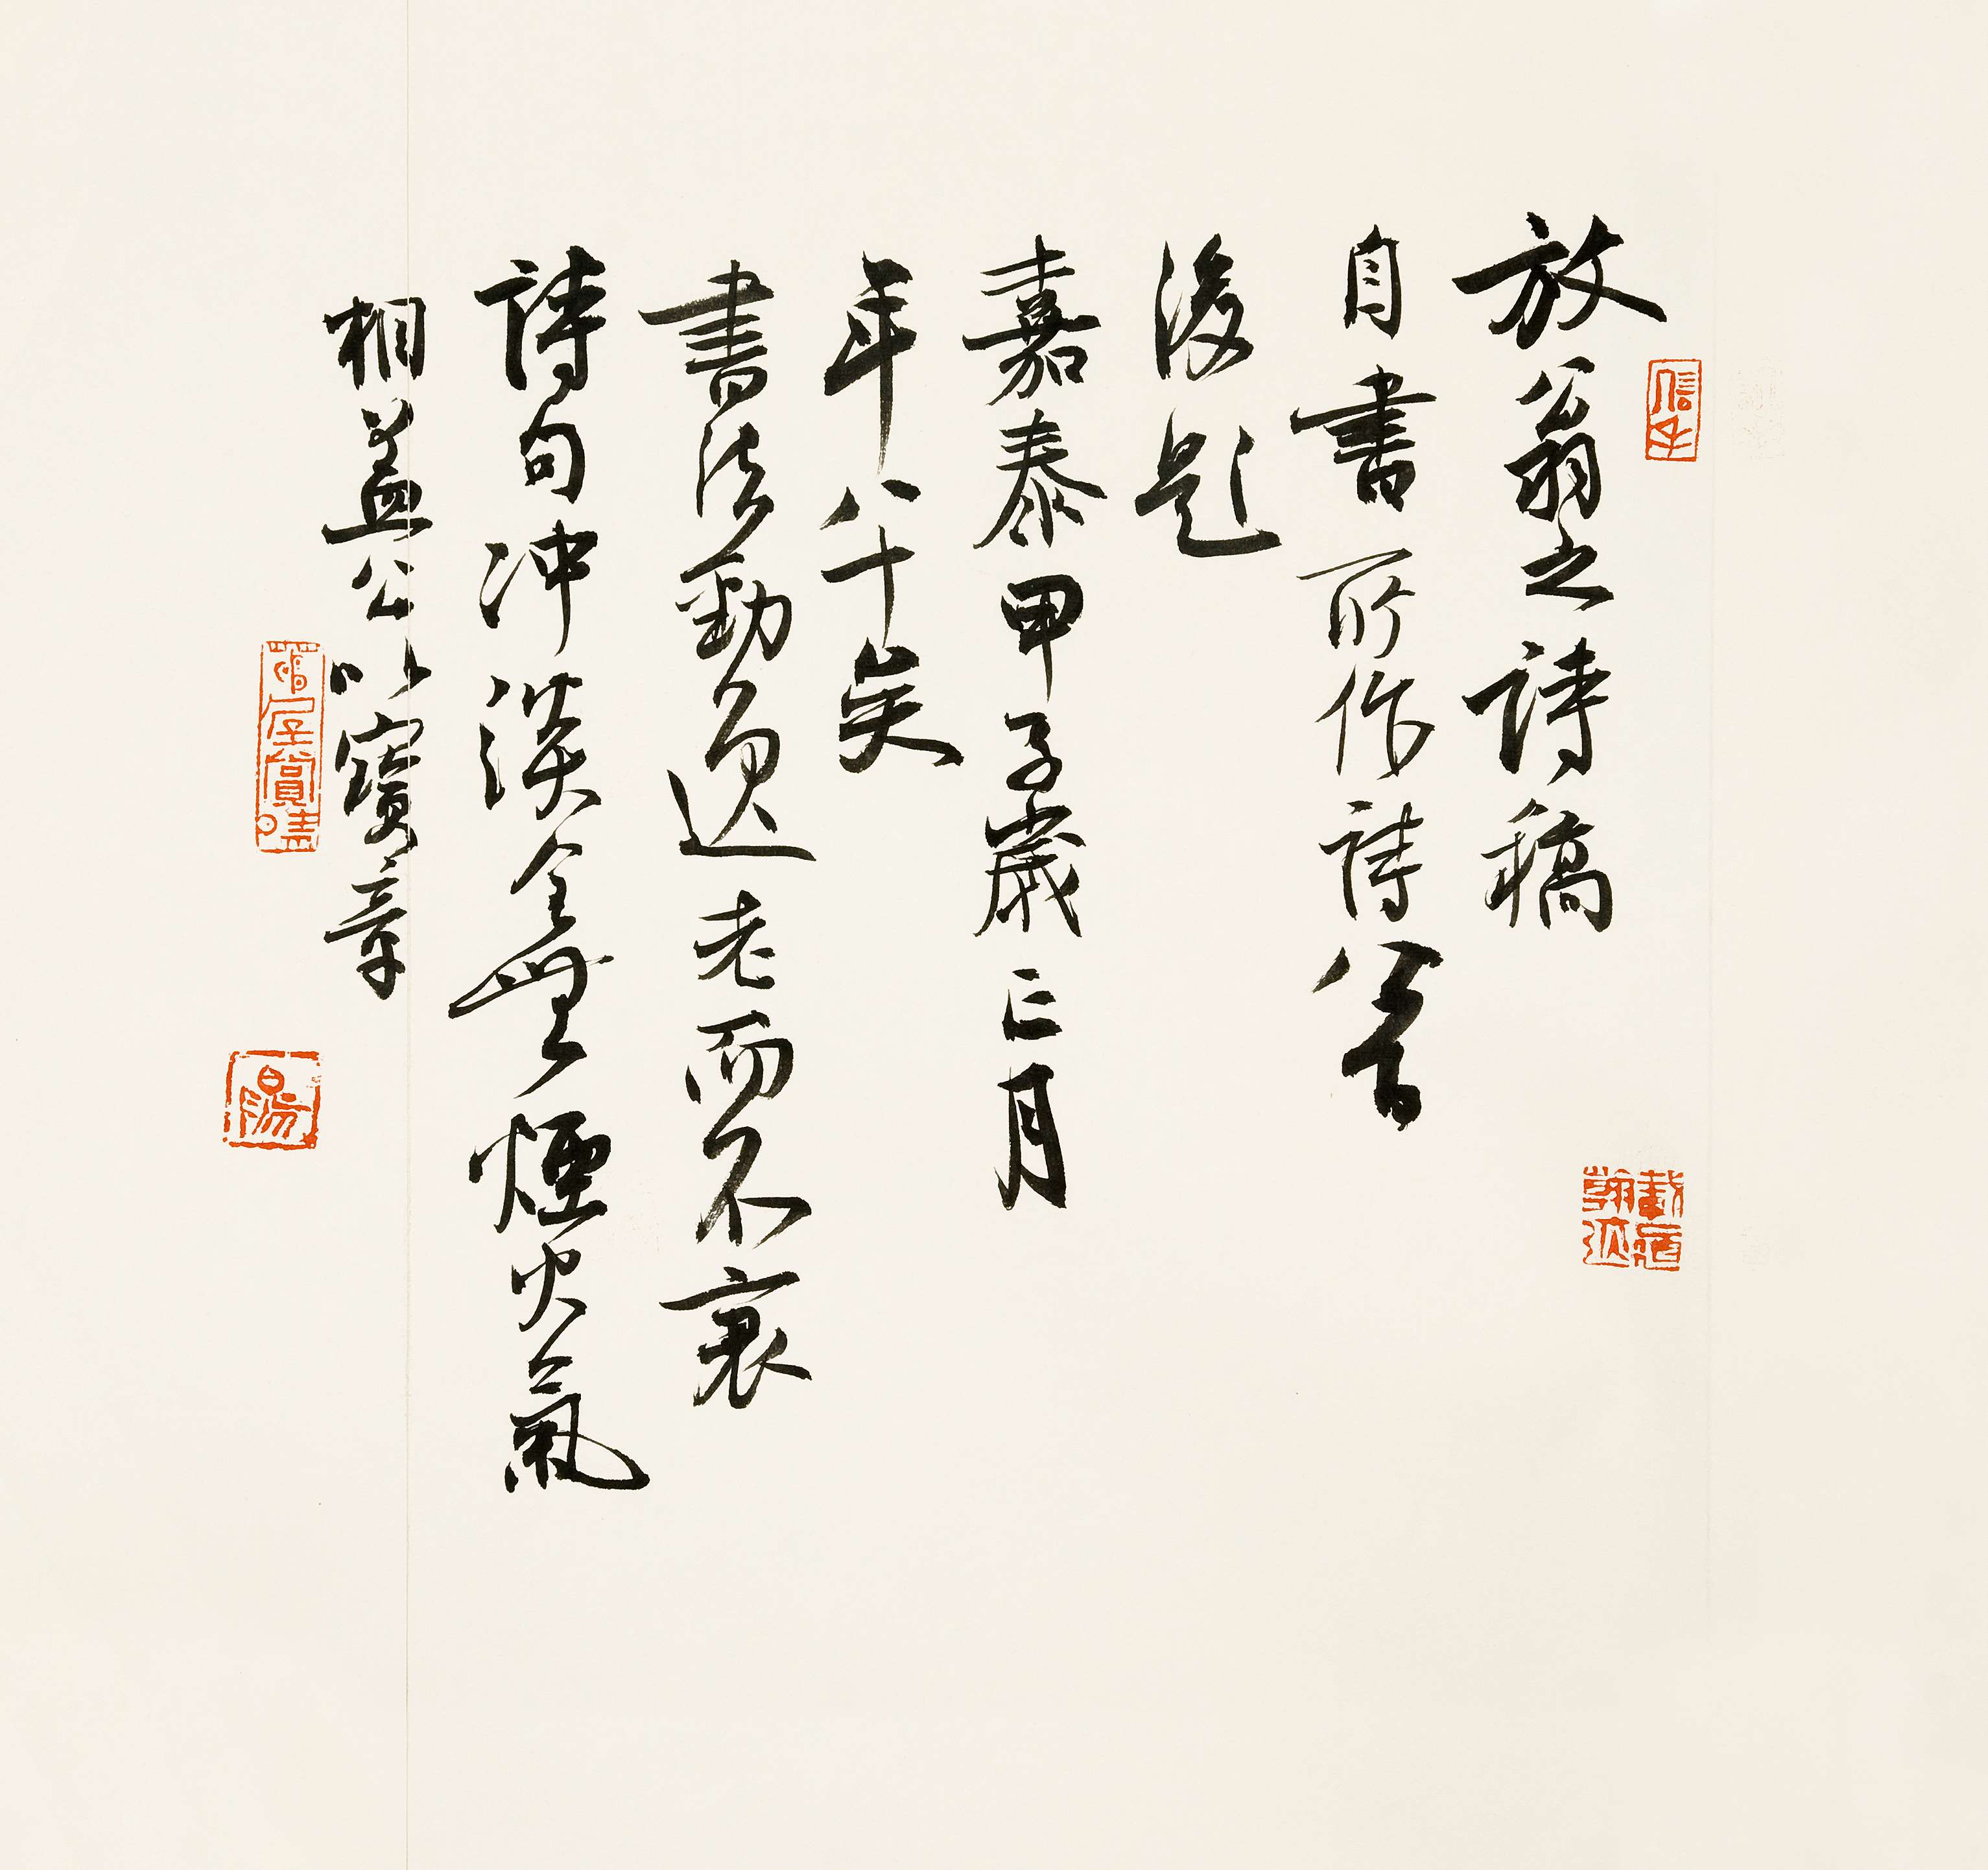 放翁之詩稿
自書所作詩卷
後題
嘉泰甲子歲正月
年八十矣
書法勁逸老而不衰
詩句冲淡全無煙火氣
相益公以寶章